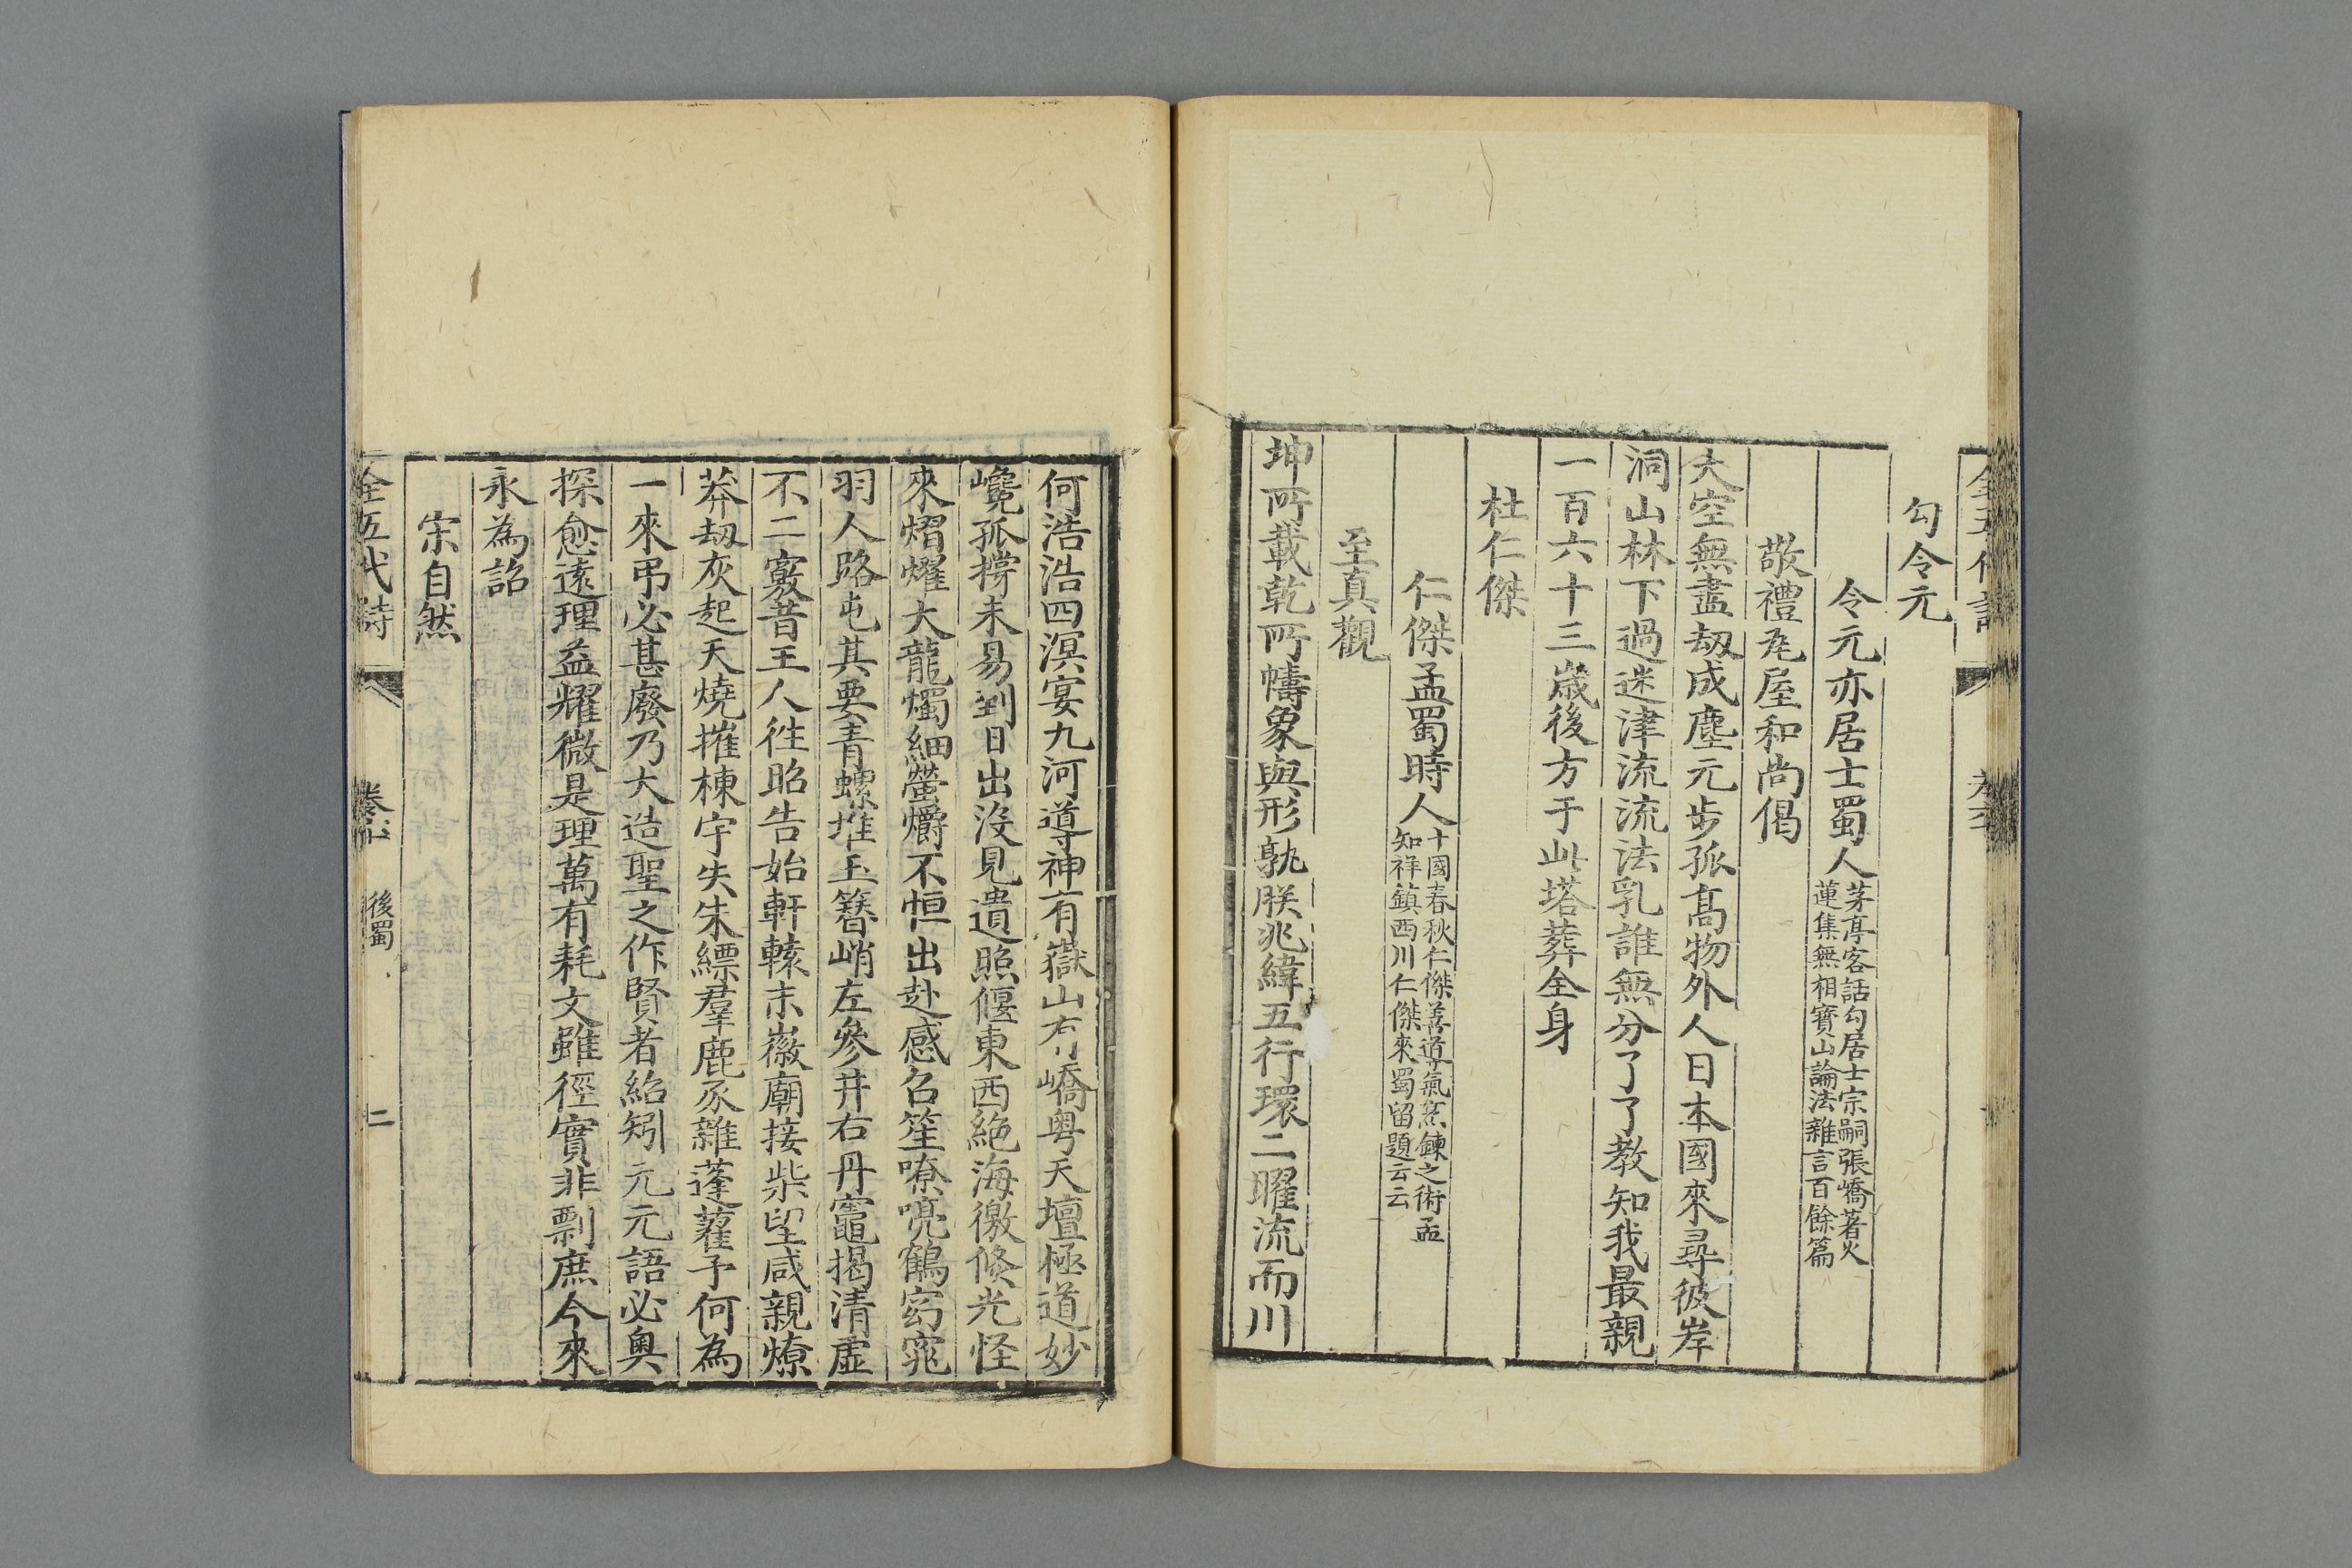 勾令元
令元亦居士蜀人茅亭客話勾居士宗嗣張憍著火
蓮集無相寶山論法雜言百餘篇
敬禮瓦屋和尚偈
大空無盡劫成塵元步孤高物外人日本國來尋彼岸
洞山林下過迷津流流法乳誰無分了了教知我最親
一百六十三歲後方于此塔葬全身
杜仁傑
仁傑孟蜀時人十國春秋仁傑善導氣烹鍊之術孟
知祥鎮西川仁傑來蜀留題云云
至真觀
坤所載乾所幬象與形孰朕兆緯五行環二曜流而川
何浩浩四溟宴九河導神有嶽山有嶠粤天壇極道妙
巉孤撐未易到日出沒見遺照偃東西絶海徼倏光怪
來熠燿大龍燭細螢爝不恒出赴感召笙嘹喨鶴窈窕
羽人路屯其要青螺堆玉簪峭左參井右丹竈揭清虛
不二竅昔王人徃昭告始軒轅末徽廟接柴望咸親燎
莽劫灰起天燒摧棟宇失朱縹羣鹿豕雜蓬藋予何為
一來弔必甚廢乃大造聖之作賢者紹矧元元語必奥
探愈遠理益耀微是理萬有耗文雖徑實非剽庶今來
永為詔
宗自然
全五代詩
後蜀
二